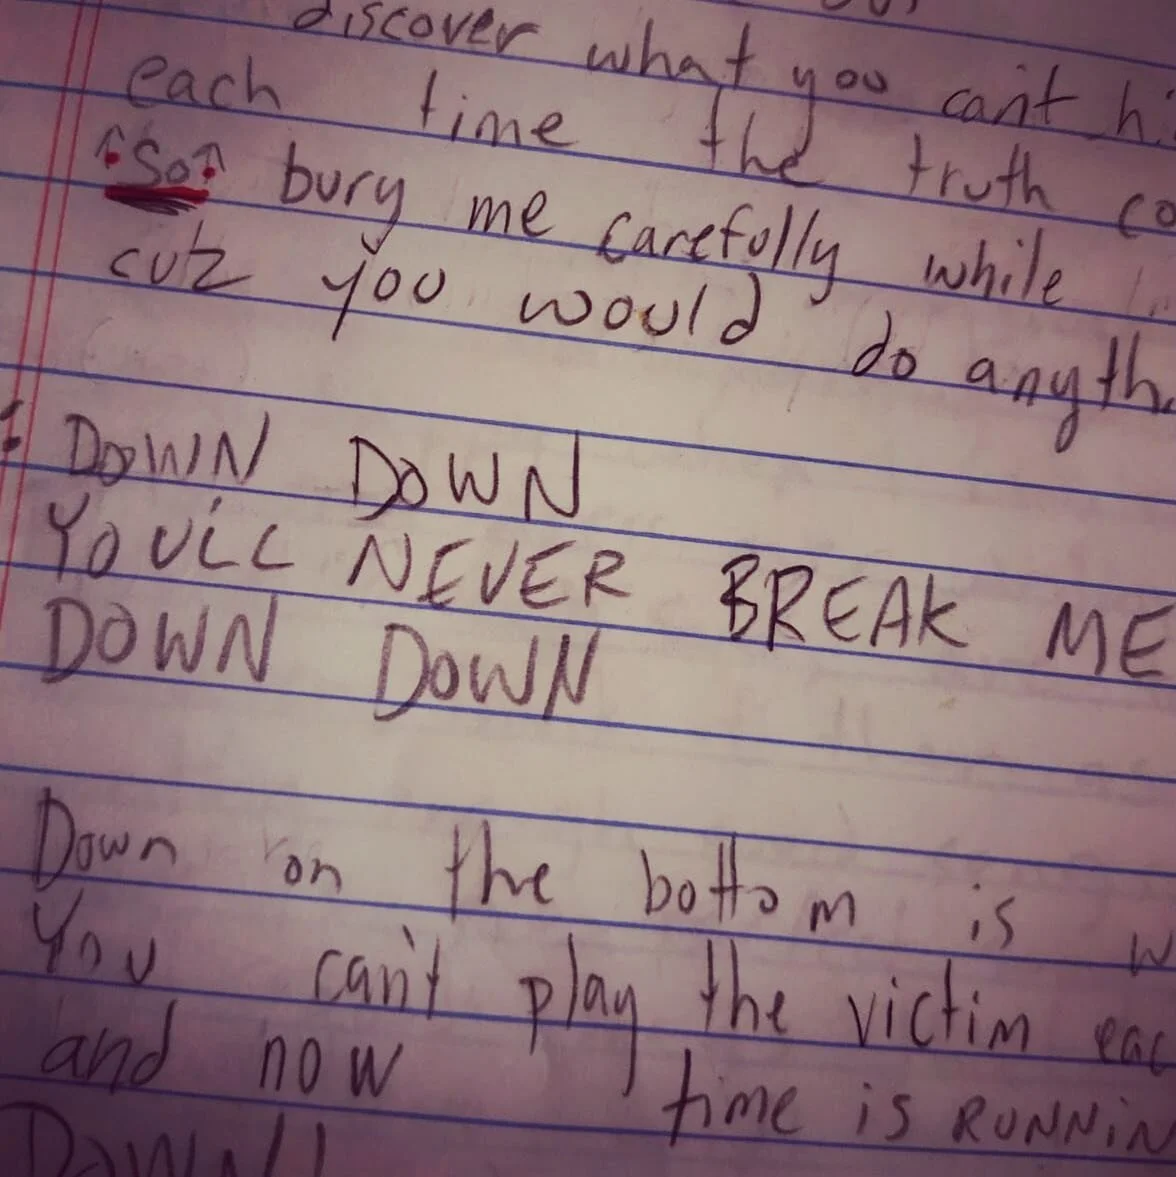 discover what you can't hi
each time the truth co
"So" bury me carefully while
cuz you would do anyth
DOWN DOWN
YOU'LL NEVER BREAK ME
DOWN DOWN
Down on the bottom is w
You can't play the victim eac
and now time is RUNNIN
DOWN!